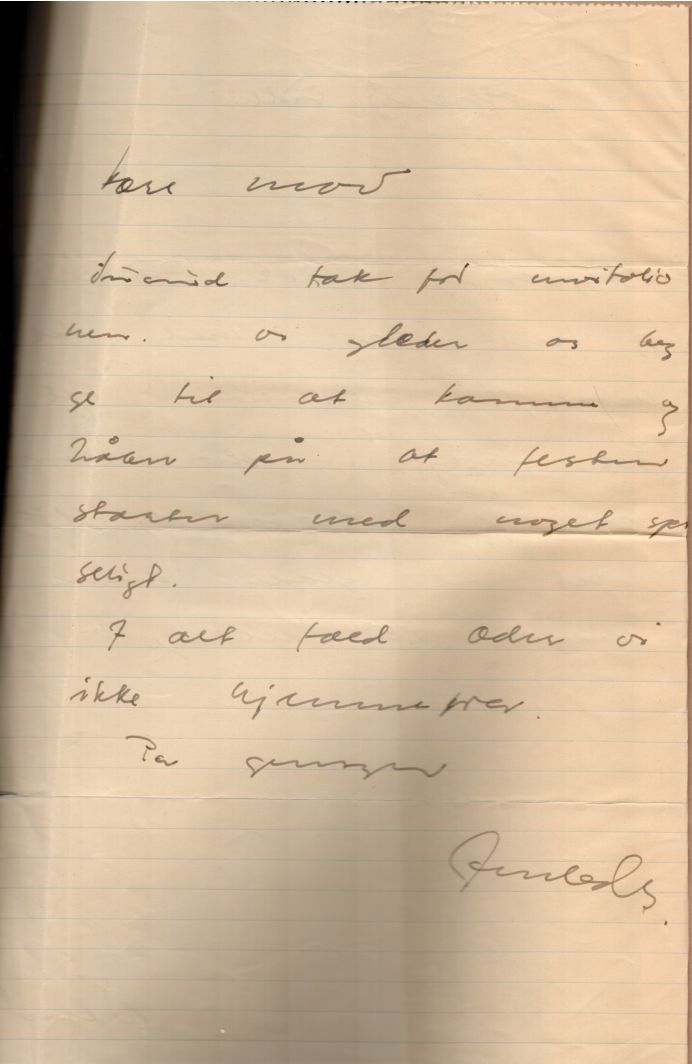 kære mor
tusind tak for invitatio
nen. vi glæder os beg
ge til at komme og
håber på at festen
starter med noget spi
seligt.
I alt fald æder vi
ikke hjemmefra.
På gensyn